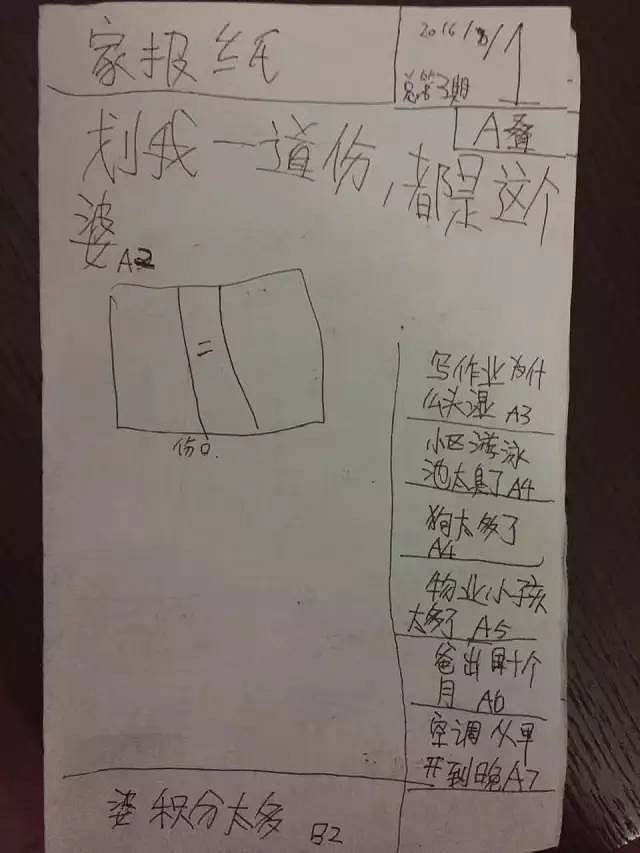 家报纸
2016/8/1
总第3期
A叠
划我一道份,都是这个
婆 A2
二
份口.
写作业为什
么头湿 A3
小区游泳
池太臭了 A4
狗太多了
A4
物业小孩
太多了 A5
爸出国十个
月 A6
空调从早
开到晚 A7
婆积分太多 B2